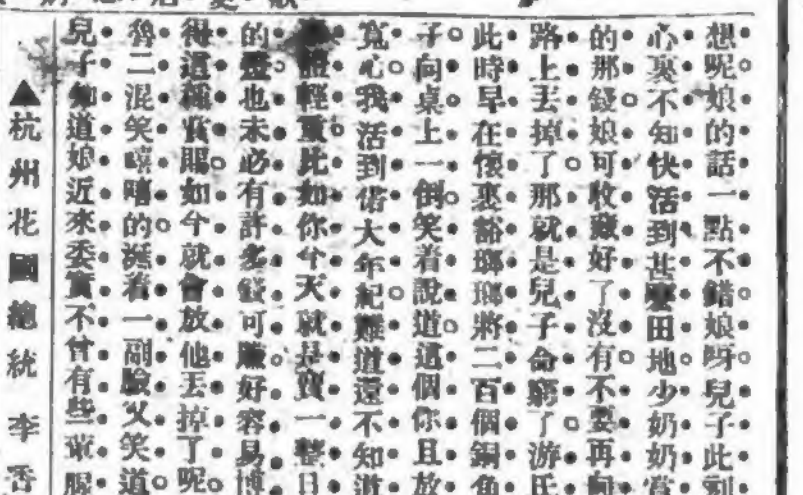 想呢娘的話一點不錯娘呀兒子此刻
心裏不知快活到甚麼田地少奶奶賞
的那錢娘可收藏好了沒有不要再向
路上丟掉了那就是兒子命窮了游氏
此時早在懷裏豁瑯瑯將二百個銅角
子向桌上一倒笑着說道這個你且放
寬心我活到偌大年紀難道還不知道
輕重比如你今天就是賣一整日
的也未必有許多錢可賺好容易博
得這種賞賜如今就會放他丟掉了呢
魯二混笑嘻嘻的涎着一副臉又笑道
兒子知道娘近來委實不曾有些葷腥
▲杭州花國總統 李香